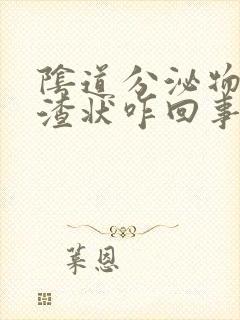 陰道分泌物
渣狀咋回事
葉恩